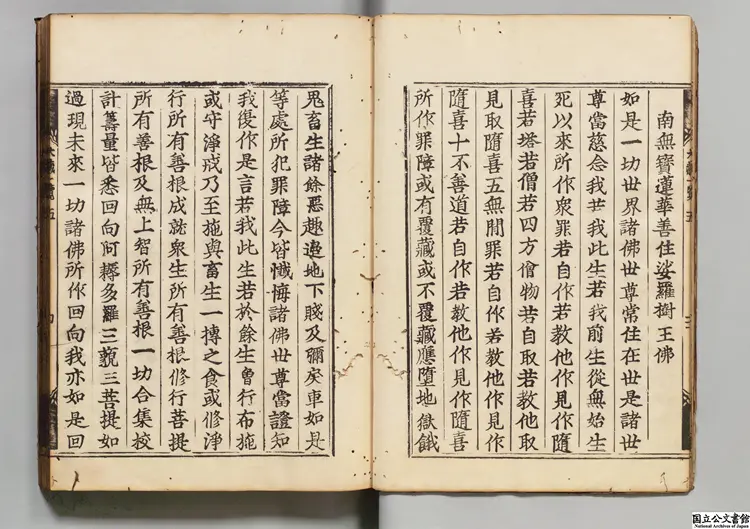 南無寶蓮華善住娑羅樹王佛
如是一切世界諸佛世尊常住在世是諸世
尊當慈念我若我此生若我前生從無始生
死以來所作衆罪若自作若教他作見作隨
喜若塔若僧若四方僧物若自取若教他取
見取隨喜五無間罪若自作若教他作見作
隨喜十不善道若自作若教他作見作隨喜
所作罪障或有覆藏或不覆藏應墮地獄餓
鬼畜生諸餘惡趣邊地下賤及彌戾車如是
等處所犯罪障今皆懺悔諸佛世尊當證知
我復作是言若我此生若於餘生曾行布施
或守淨戒乃至施與畜生一摶之食或修淨
行所有善根成就衆生所有善根修行菩提
所有善根及無上智所有善根一切合集挍
計籌量皆悉回向阿耨多羅三藐三菩提如
過現未來一切諸佛所作回向我亦如是回
国立公文書館
National Archives of Japan